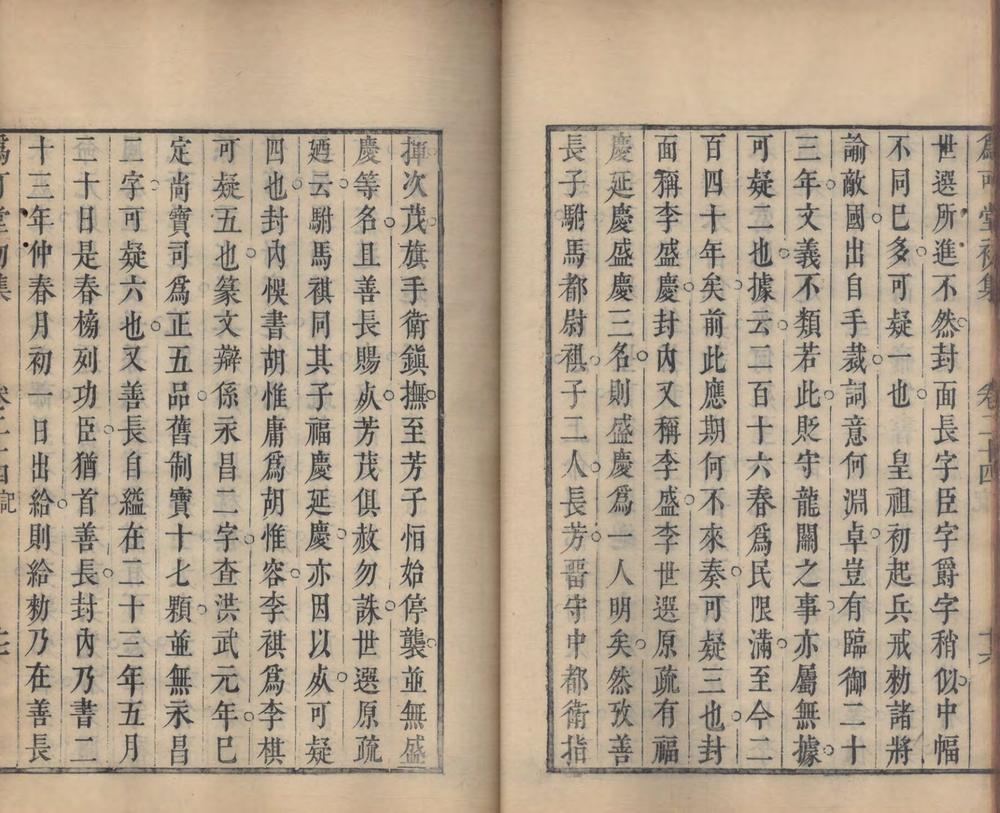 爲可堂初集 卷二十四 十六
世選所進不然封面長字臣字爵字稍似中幅
不同巳多可疑一也 皇祖初起兵戒勑諸將
諭敵國出自手裁詞意何淵卓豈有臨御二十
三年文義不類若此貶守龍關之事亦屬無據
可疑二也據云二百十六春爲民限滿至今二
百四十年矣前此應期何不來奏可疑三也封
面稱李盛慶封內又稱李盛李世選原疏有福
慶延慶盛慶三名則盛慶爲一人明矣然攷善
長子駙馬都尉祺子二人長芳畱守中都衛指
揮次茂旗手衛鎭撫至芳子恒始停襲並無盛
慶等名且善長賜𣦸芳茂俱赦勿誅世選原疏
廼云駙馬祺同其子福慶延慶亦因以𣦸可疑
四也封內悞書胡惟庸爲胡惟容李祺爲李棋
可疑五也篆文辯係永昌二字查洪武元年巳
定尚寶司爲正五品舊制寶十七顆並無永昌
二字可疑六也又善長自縊在二十三年五月
二十日是春榜列功臣猶首善長封內乃書二
十三年仲春月初一日出給則給勑乃在善長
爲可堂初集 卷二十四記